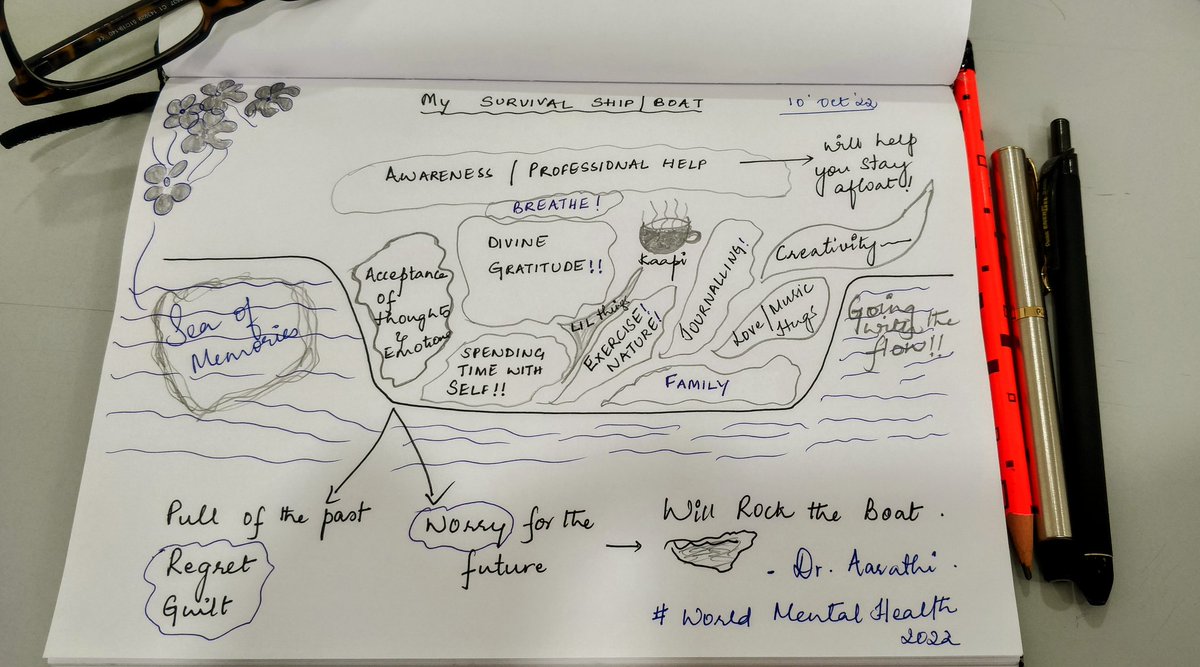 My SURVIVAL SHIP/BOAT
10 Oct'22
AWARENESS / PROFESSIONAL HELP
will help
you stay
afloat!!
BREATHE!
DIVINE
GRATITUDE!!
Kaapi
Creativity
Acceptance
of
thoughts
&
Emotions
LIL things
EXERCISE!
NATURE!
JOURNALLING!
Love/Music
Hugs
SPENDING
TIME WITH
SELF!!
FAMILY
Sea of
Memories
Going
with the
flow!!
Pull of the past
Regret
Guilt
Worry for the
future
Will Rock the Boat.
- Dr. Aarathi.
# World Mental Health
2022